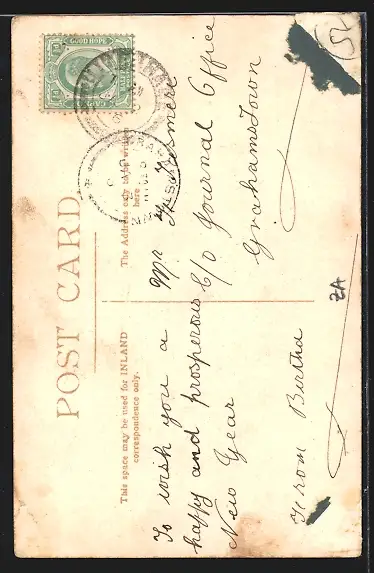 POST CARD
This space may be used for INLAND
correspondence only.
The Address only to be written
here.
GOOD HOPE
To wish you a
happy and prosperous
New Year
From Bertha
Mr
C/o Journal Office
Grahamstown
ZA